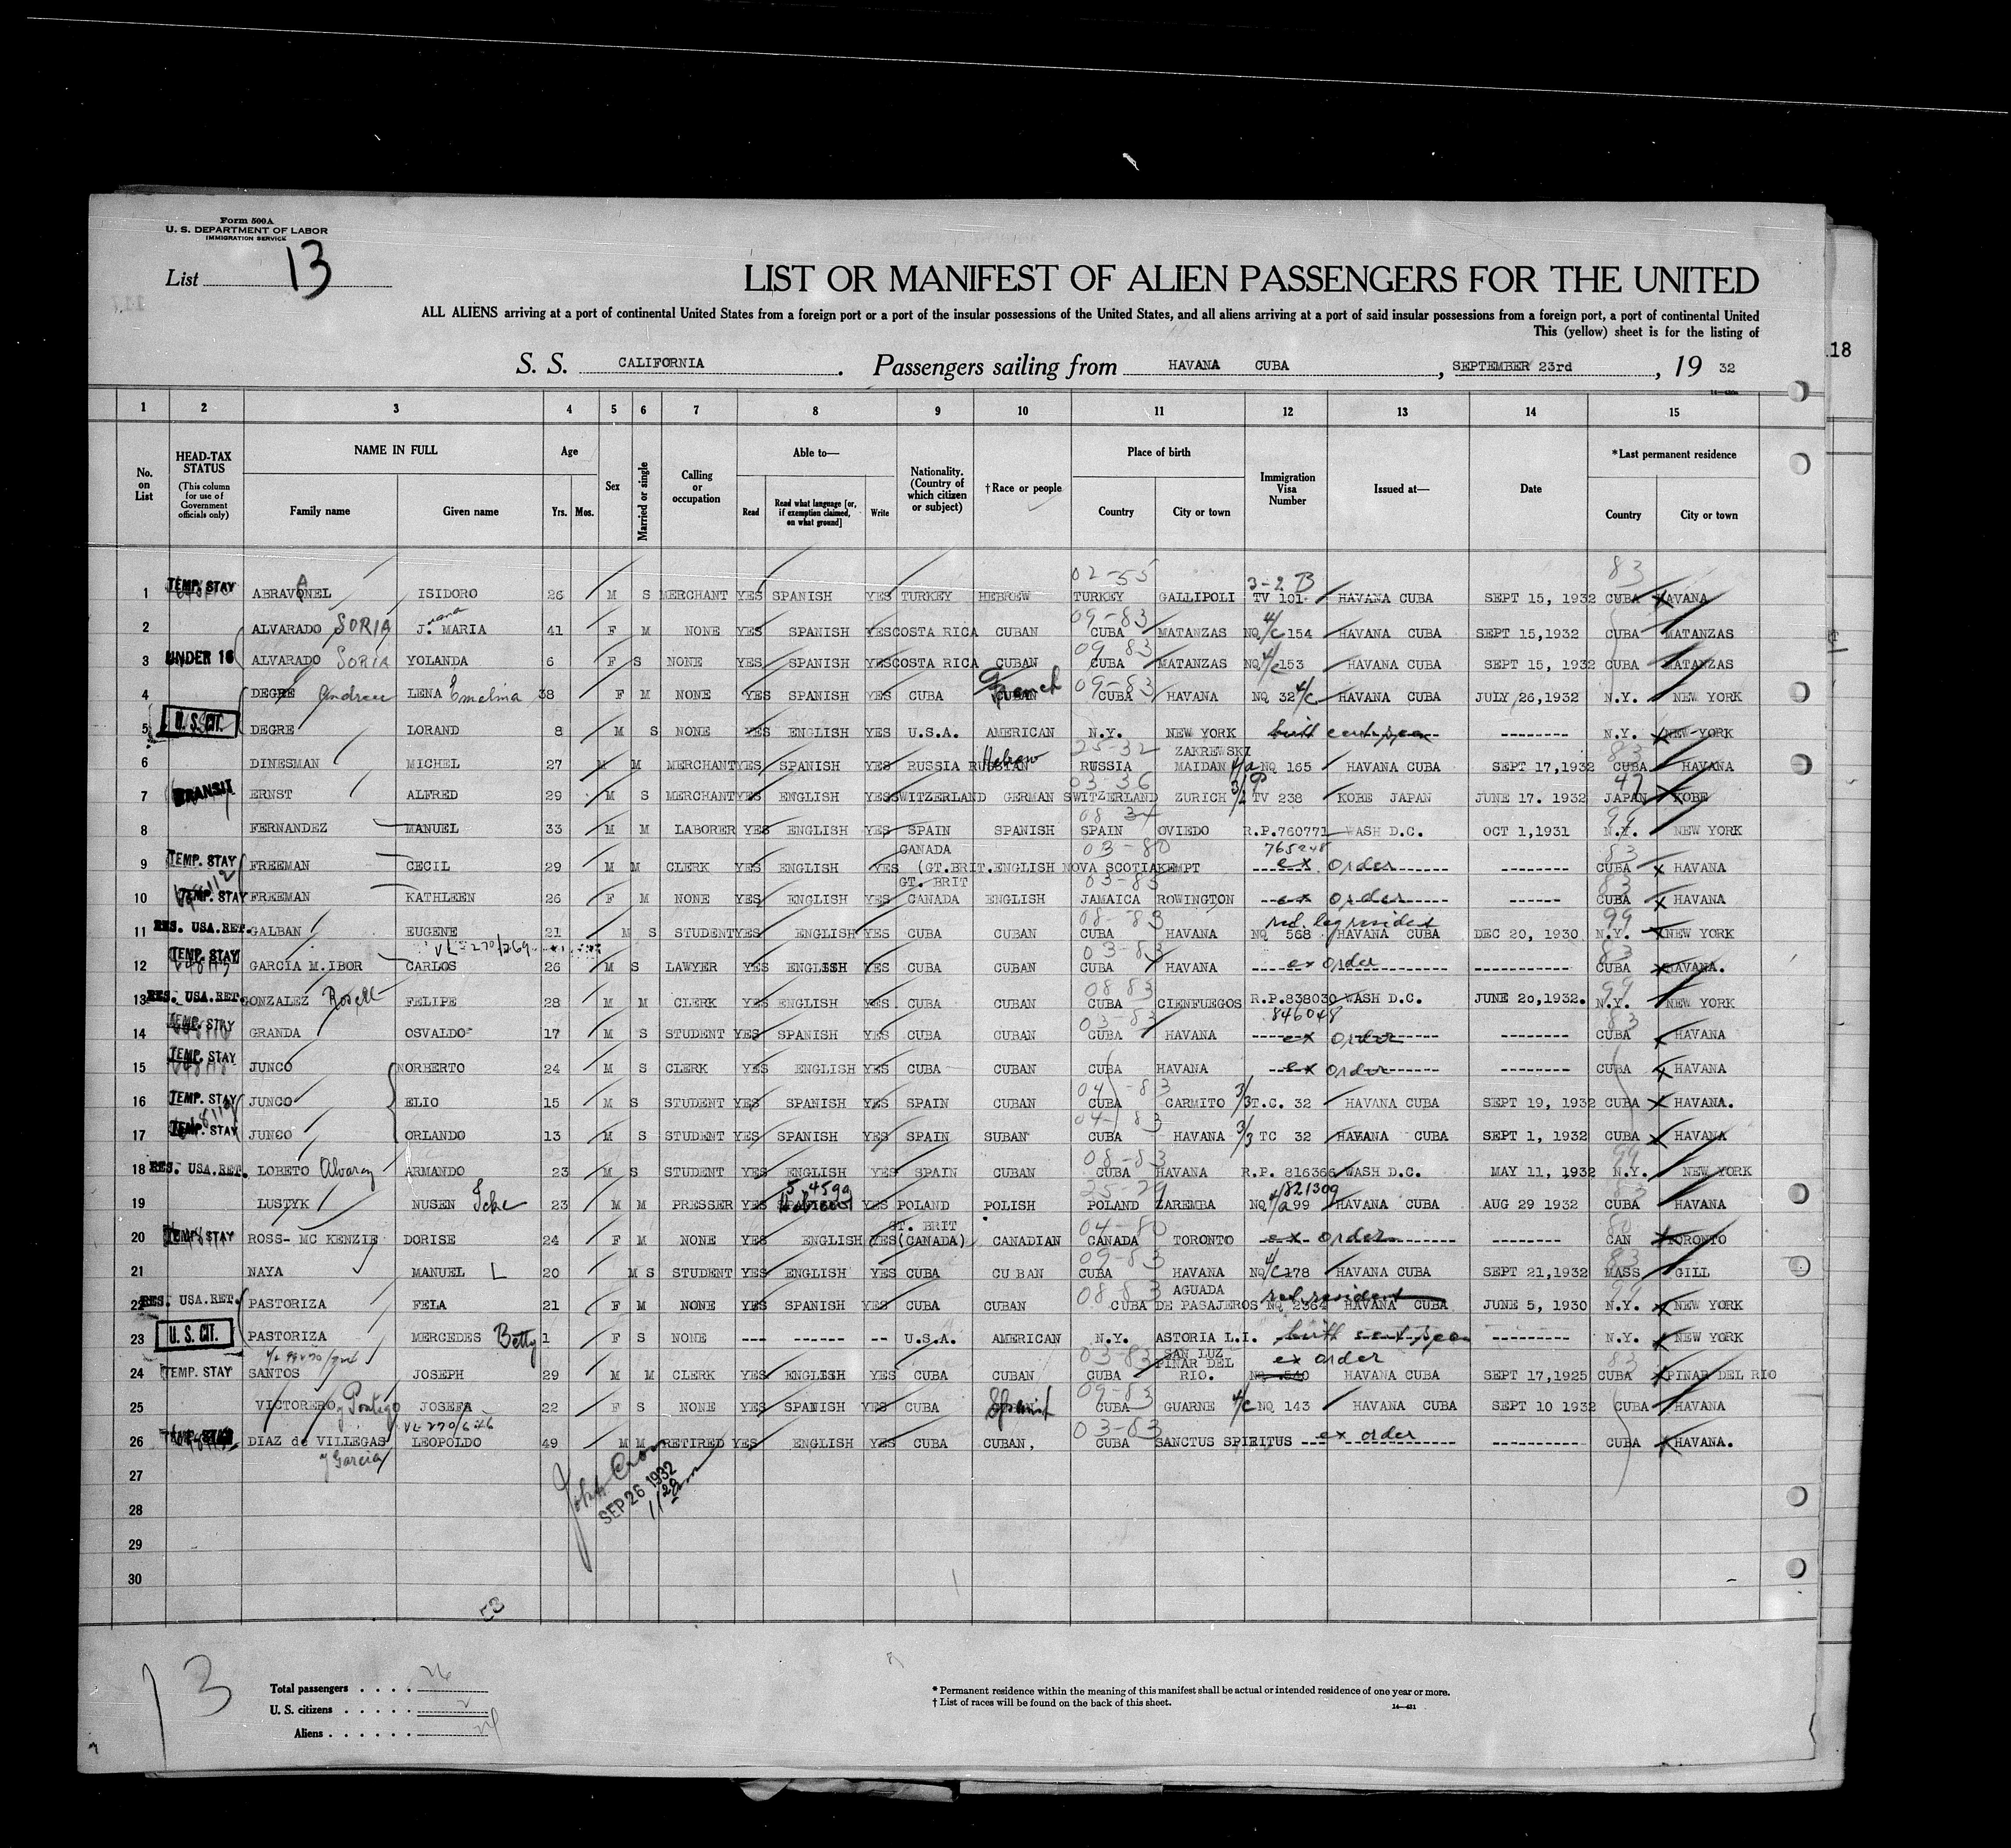 Form 500A
U. S. DEPARTMENT OF LABOR
IMMIGRATION SERVICE
List 13
LIST OR MANIFEST OF ALIEN PASSENGERS FOR THE UNITED
ALL ALIENS arriving at a port of continental United States from a foreign port or a port of the insular possessions of the United States, and all aliens arriving at a port of said insular possessions from a foreign port, a port of continental United
This (yellow) sheet is for the listing of
S. S. CALIFORNIA. Passengers sailing from HAVANA CUBA, SEPTEMBER 23rd, 19 32
18
1 2 3 4 5 6 7 8 9 10 11 12 13 14 15
No. on List
HEAD-TAX STATUS (This column for use of Government officials only)
NAME IN FULL Family name Given name
Age Yrs. Mos.
Sex
Married or single
Calling or occupation
Able to— Read Read what language [or, if exemption claimed, on what ground] Write
Nationality. (Country of which citizen or subject)
†Race or people
Place of birth Country City or town
Immigration Visa Number
Issued at—
Date
*Last permanent residence Country City or town
02-55 3-2 B 83
1 TEMP. STAY ABRAVANEL ISIDORO 26 M S MERCHANT YES SPANISH YES TURKEY HEBREW TURKEY GALLIPOLI TV 101 HAVANA CUBA SEPT 15, 1932 CUBA HAVANA
09-83
2 ALVARADO SORIA J. MARIA 41 F M NONE YES SPANISH YES COSTA RICA CUBAN CUBA MATANZAS NQ 4/c 154 HAVANA CUBA SEPT 15,1932 CUBA MATANZAS
09 83
3 UNDER 16 ALVARADO SORIA YOLANDA 6 F S NONE YES SPANISH YES COSTA RICA CUBAN CUBA MATANZAS NQ 4/c 153 HAVANA CUBA SEPT 15, 1932 CUBA MATANZAS
09-83
4 DEGRE Andreu LENA Emelina 38 F M NONE YES SPANISH YES CUBA French CUBA HAVANA NQ 32 4/c HAVANA CUBA JULY 26,1932 N.Y. NEW YORK
5 U. S. CIT. DEGRE LORAND 8 M S NONE YES ENGLISH YES U.S.A. AMERICAN N.Y. NEW YORK birth cert. -------- N.Y. NEW-YORK
25-32 ZAKREWSKI 83
6 DINESMAN MICHEL 27 M M MERCHANT YES SPANISH YES RUSSIA RUSSIAN Hebrew RUSSIA MAIDAN 4/a NQ 165 HAVANA CUBA SEPT 17,1932 CUBA HAVANA
03-36 47
7 TRANSIT ERNST ALFRED 29 M S MERCHANT YES ENGLISH YES SWITZERLAND GERMAN SWITZERLAND ZURICH 3/2 TV 238 KOBE JAPAN JUNE 17. 1932 JAPAN KOBE
08 34 99
8 FERNANDEZ MANUEL 33 M M LABORER YES ENGLISH YES SPAIN SPANISH SPAIN OVIEDO R.P.760771 WASH D.C. OCT 1,1931 N.Y. NEW YORK
CANADA 03-80 765248 83
9 TEMP. STAY FREEMAN CECIL 29 M M CLERK YES ENGLISH YES (GT.BRIT. ENGLISH NOVA SCOTIA KEMPT ex order -------- CUBA HAVANA
GT. BRIT 03-83 83
10 TEMP. STAY FREEMAN KATHLEEN 26 F M NONE YES ENGLISH YES CANADA ENGLISH JAMAICA ROWINGTON ex order -------- CUBA HAVANA
08-83 99
11 RES. USA.RET. GALBAN EUGENE 21 M S STUDENT YES ENGLISH YES CUBA CUBAN CUBA HAVANA NQ 568 HAVANA CUBA DEC 20, 1930 N.Y. NEW YORK
VL-270/269 03-83 83
12 TEMP. STAY GARCIA M.IBOR CARLOS 26 M S LAWYER YES ENGLISH YES CUBA CUBAN CUBA HAVANA ex order -------- CUBA HAVANA.
08 83 99
13 RES. USA.RET. GONZALEZ Rosell FELIPE 28 M M CLERK YES ENGLISH YES CUBA CUBAN CUBA CIENFUEGOS R.P.838030 WASH D.C. JUNE 20,1932. N.Y. NEW YORK
03-83 846048 83
14 TEMP. STAY GRANDA OSVALDO 17 M S STUDENT YES SPANISH YES CUBA CUBAN CUBA HAVANA ex order -------- CUBA HAVANA
15 TEMP. STAY JUNCO NORBERTO 24 M S CLERK YES ENGLISH YES CUBA CUBAN CUBA HAVANA ex order -------- CUBA HAVANA
04-83
16 TEMP. STAY JUNCO ELIO 15 M S STUDENT YES SPANISH YES SPAIN CUBAN CUBA CARMITO 3/3 T.C. 32 HAVANA CUBA SEPT 19, 1932 CUBA HAVANA.
04-83
17 TEMP. STAY JUNCO ORLANDO 13 M S STUDENT YES SPANISH YES SPAIN SUBAN CUBA HAVANA 3/3 TC 32 HAVANA CUBA SEPT 1, 1932 CUBA HAVANA
08-83 99
18 RES. USA.RET. LOBETO Alvarez ARMANDO 23 M S STUDENT YES ENGLISH YES SPAIN CUBAN CUBA HAVANA R.P. 816366 WASH D.C. MAY 11, 1932 N.Y. NEW YORK
25-29 821309 83
19 LUSTYK NUSEN Icke 23 M M PRESSER YES Hebrew YES POLAND POLISH POLAND ZAREMBA NQ 4/a 99 HAVANA CUBA AUG 29 1932 CUBA HAVANA
GT. BRIT 04-80 80
20 TEMP. STAY ROSS- MC KENZIE DORISE 24 F M NONE YES ENGLISH YES (CANADA) CANADIAN CANADA TORONTO ex order -------- CAN TORONTO
09-83 83
21 NAYA MANUEL L 20 M S STUDENT YES ENGLISH YES CUBA CUBAN CUBA HAVANA NQ 4/c 178 HAVANA CUBA SEPT 21,1932 MASS GILL
08-83 AGUADA 99
22 RES. USA.RET. PASTORIZA FELA 21 F M NONE YES SPANISH YES CUBA CUBAN CUBA DE PASAJEROS NQ 2364 HAVANA CUBA JUNE 5, 1930 N.Y. NEW YORK
23 U. S. CIT. PASTORIZA MERCEDES Betty 1 F S NONE --- ------ -- U.S.A. AMERICAN N.Y. ASTORIA L.I. birth cert. --------- N.Y. NEW YORK
03-83 SAN LUZ PINAR DEL ex order 83
24 TEMP. STAY SANTOS JOSEPH 29 M M CLERK YES ENGLISH YES CUBA CUBAN CUBA RIO. NQ 540 HAVANA CUBA SEPT 17,1925 CUBA PINAR DEL RIO
09-83
25 VICTORERO y Pontigo JOSEFA 22 F S NONE YES SPANISH YES CUBA Spanish CUBA GUARNE 4/c NQ 143 HAVANA CUBA SEPT 10 1932 CUBA HAVANA
VL-270/646 03-83
26 TEMP. STAY DIAZ de VILLEGAS y Garcia LEOPOLDO 49 M M RETIRED YES ENGLISH YES CUBA CUBAN, CUBA SANCTUS SPIRITUS ex order ---------- CUBA HAVANA.
27
John
SEP 26 1932
28
29
30
13
Total passengers . . . . 26
U. S. citizens . . . . . 2
Aliens . . . . . . 24
* Permanent residence within the meaning of this manifest shall be actual or intended residence of one year or more.
† List of races will be found on the back of this sheet.